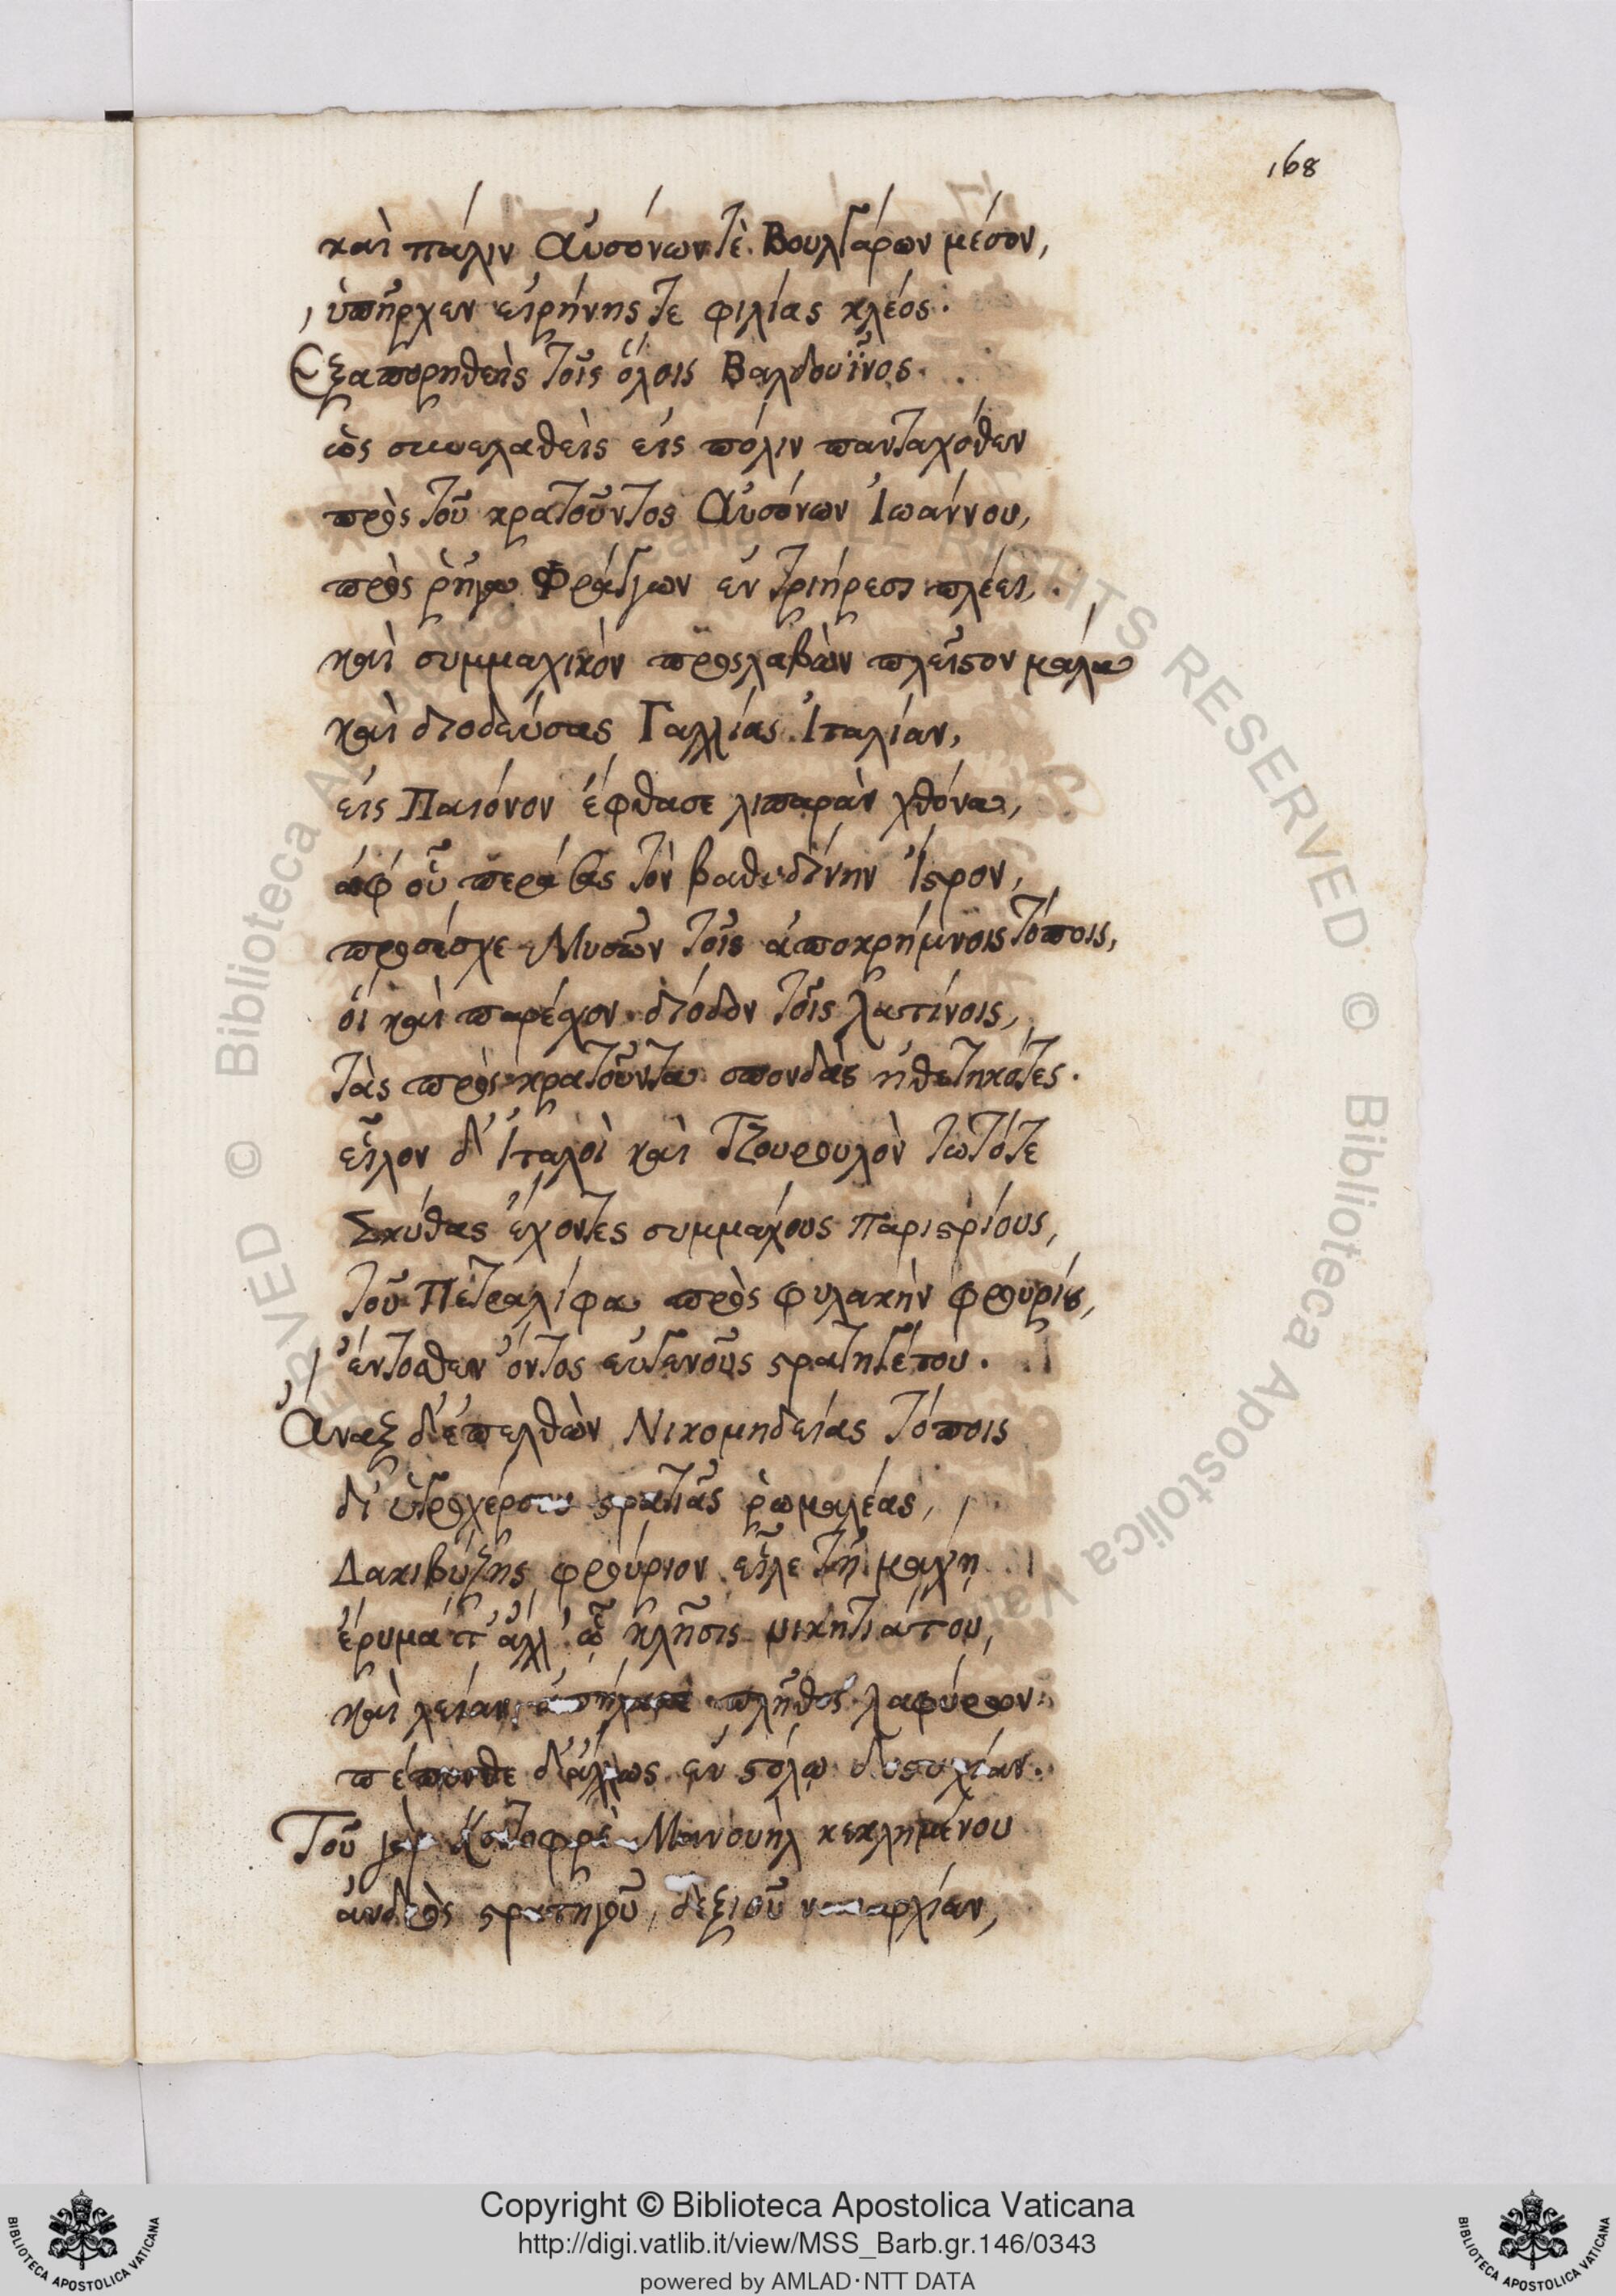 168
καὶ πάλιν Αὐσόνων τὲ Βουλγάρων μέσον,
ὑπῆρχεν εἰρήνης τε φιλίας κλέος.
Ἐξαπορηθεὶς τοῖς ὅλοις Βαλδουῖνος
ὡς συνελαθεὶς εἰς πόλιν πανταχόθεν
πρὸς τοῦ κρατοῦντος Αὐσόνων Ἰωάννου,
πρὸς ῥῆγα Φράγγων ἐν τριήρεσι πλέει,
καὶ συμμαχικὸν προσλαβὼν πλεῖστον μάλα
καὶ διοδεύσας Γαλλίας Ἰταλίαν,
εἰς Παιόνον ἔφθασε λιπαρὰν χθόνα,
ἀφ' οὗ περάσας τὸν βαθυδίνην Ἴστρον,
προσέσχε Μυσῶν τοῖς ἀποκρήμνοις τόποις,
οἳ καὶ παρέχον δίοδον τοῖς Λατίνοις,
τὰς πρὸς κρατοῦντα σπονδὰς ἠθετηκότες.
εἷλον δ' Ἰταλοὶ καὶ Τζουρουλὸν τῷ τότε
Σκύθας ἔχοντες συμμάχους Παριστρίους,
τοῦ Πετραλίφα πρὸς φυλακὴν φρουρίου,
ἔντοσθεν ὄντος εὐγενοῦς στρατηγέτου.
Ἄναξ δ' ἐπελθὼν Νικομηδείας τόποις
δι' ὑγροχέρσου στρατιᾶς ῥωμαλέας,
Δακιβύζης φρούριον εἷλε τῇ μάχῃ
ἔρυμά τ' ἄλλ' ᾧ κλῆσις Νικητιάτου,
καὶ λείαν πλῆθος λαφύρων
πέπονθε δ' ἄλλως ἐν στόλῳ δυστυχίαν.
Τοῦ γὰρ Κοντοφρὲ Μανουὴλ κεκλημένου
ἀνδρὸς στρατηγοῦ, δεξιοῦ ναυαρχίαν,
Copyright © Biblioteca Apostolica Vaticana
http://digi.vatlib.it/view/MSS_Barb.gr.146/0343
powered by AMLAD·NTT DATA
BIBLIOTECA APOSTOLICA VATICANA
BIBLIOTECA APOSTOLICA VATICANA